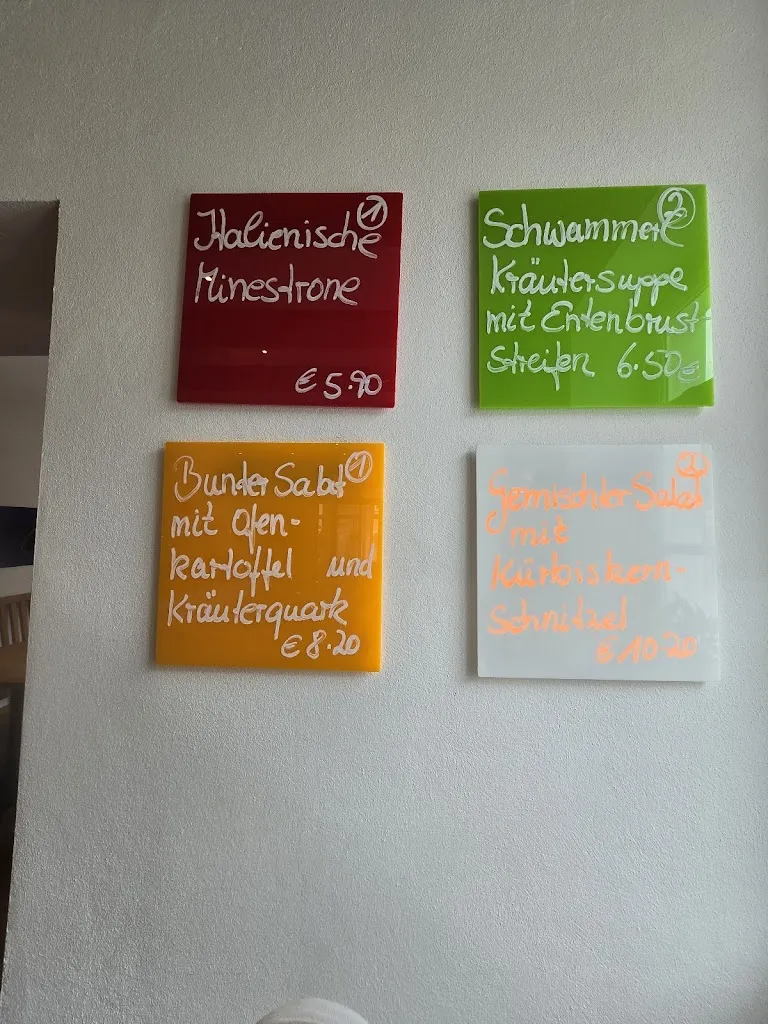 ①
Italienische
Minestrone
€ 5.90
②
Schwammerl
Kräutersuppe
mit Entenbrust-
streifen 6.50€
①
Bunter Salat
mit Ofen-
kartoffel und
Kräuterquark
€ 8.20
②
Gemischter Salat
mit
Kürbiskern-
Schnitzel
€ 10.20